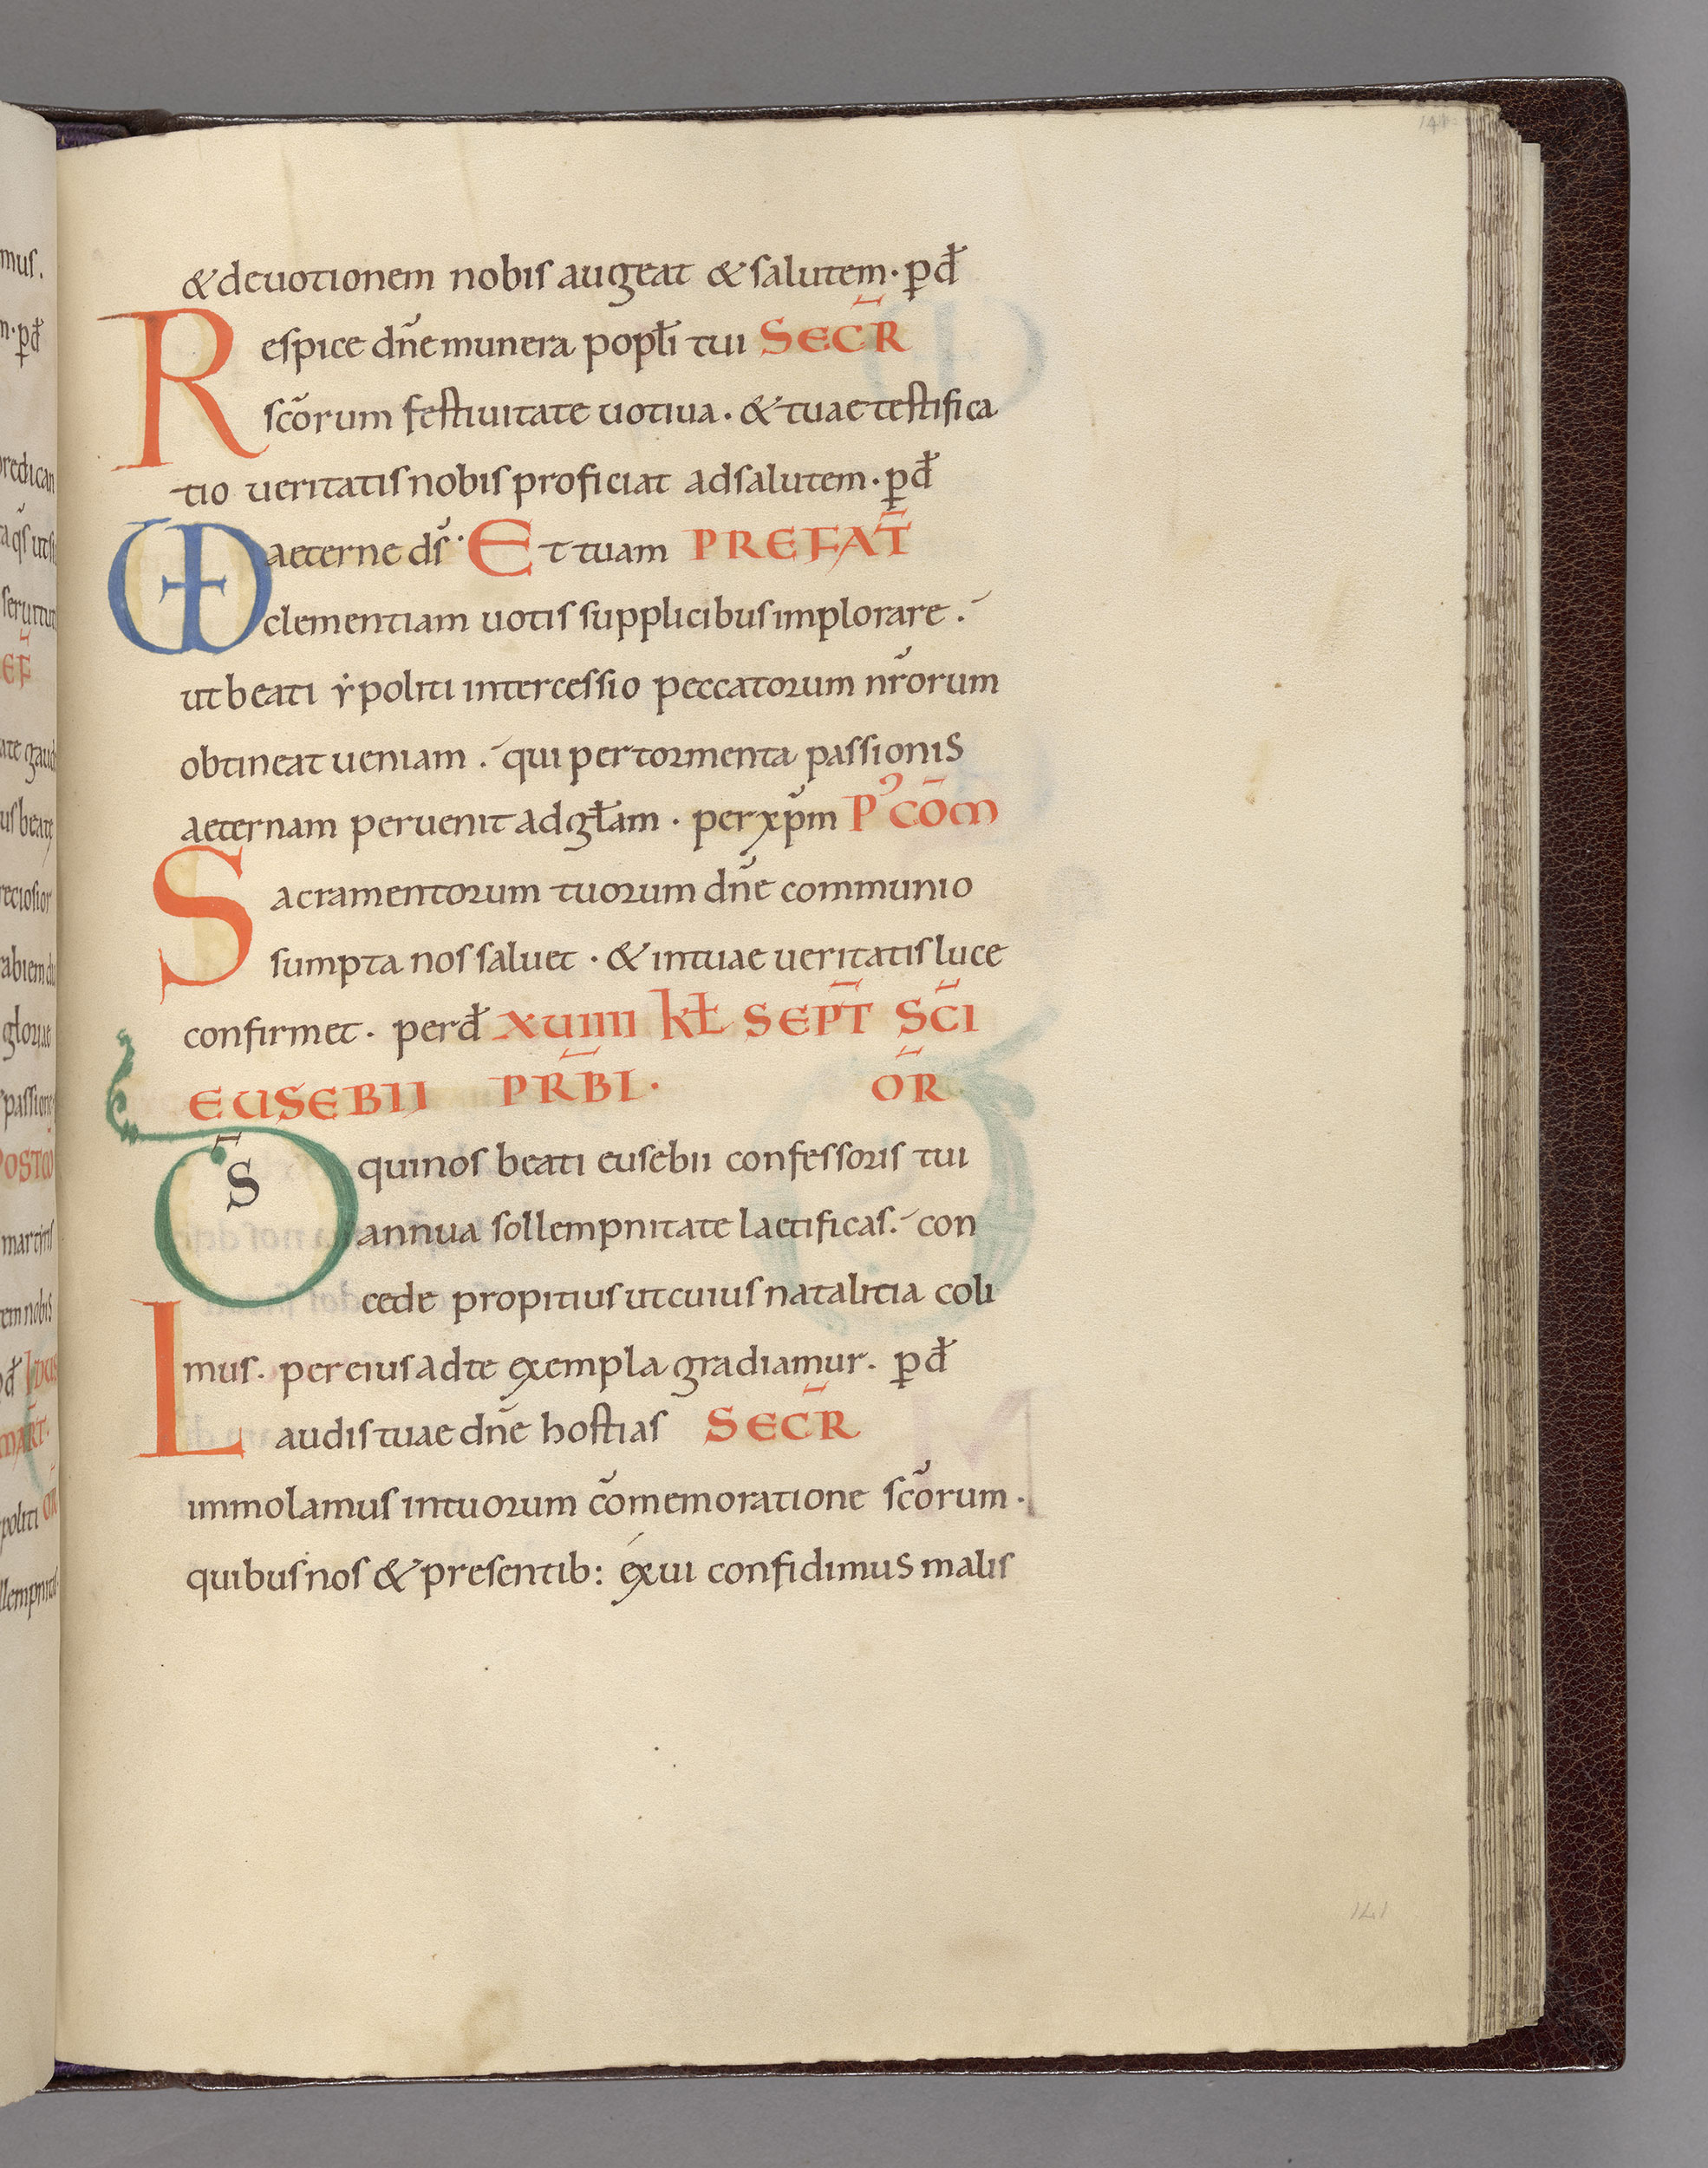 141
& deuotionem nobis augeat & salutem · p̲ đ
Respice dn̄e munera popłi tui SECR̄
sc̄orum festiuitate uotiua · & tuae testifica
tio ueritatis nobis proficiat ad salutem · p̲ đ
UD aeterne ds̄ · Et tuam PREFAT̄
clementiam uotis supplicibus implorare ·
ut beati ẏpoliti intercessio peccatorum nr̄orum
obtineat ueniam · qui per tormenta passionis
aeternam peruenit ad głam · per xp̄m P' CŌM
Sacramentorum tuorum dn̄e communio
sumpta nos saluet · & in tuae ueritatis luce
confirmet · per đ XUIIII KŁ SEPT̄ SC̄I
EUSEBII PR̄BI · OR̄
D̄S qui nos beati eusebii confessoris tui
annua sollempnitate laetificas · con
cede propitius ut cuius natalitia coli
mus · per eius ad te exempla gradiamur · p̲ đ
Laudis tuae dn̄e hostias SECR̄
immolamus in tuorum cōmemoratione sc̄orum ·
quibus nos & presentib: exui confidimus malis
141